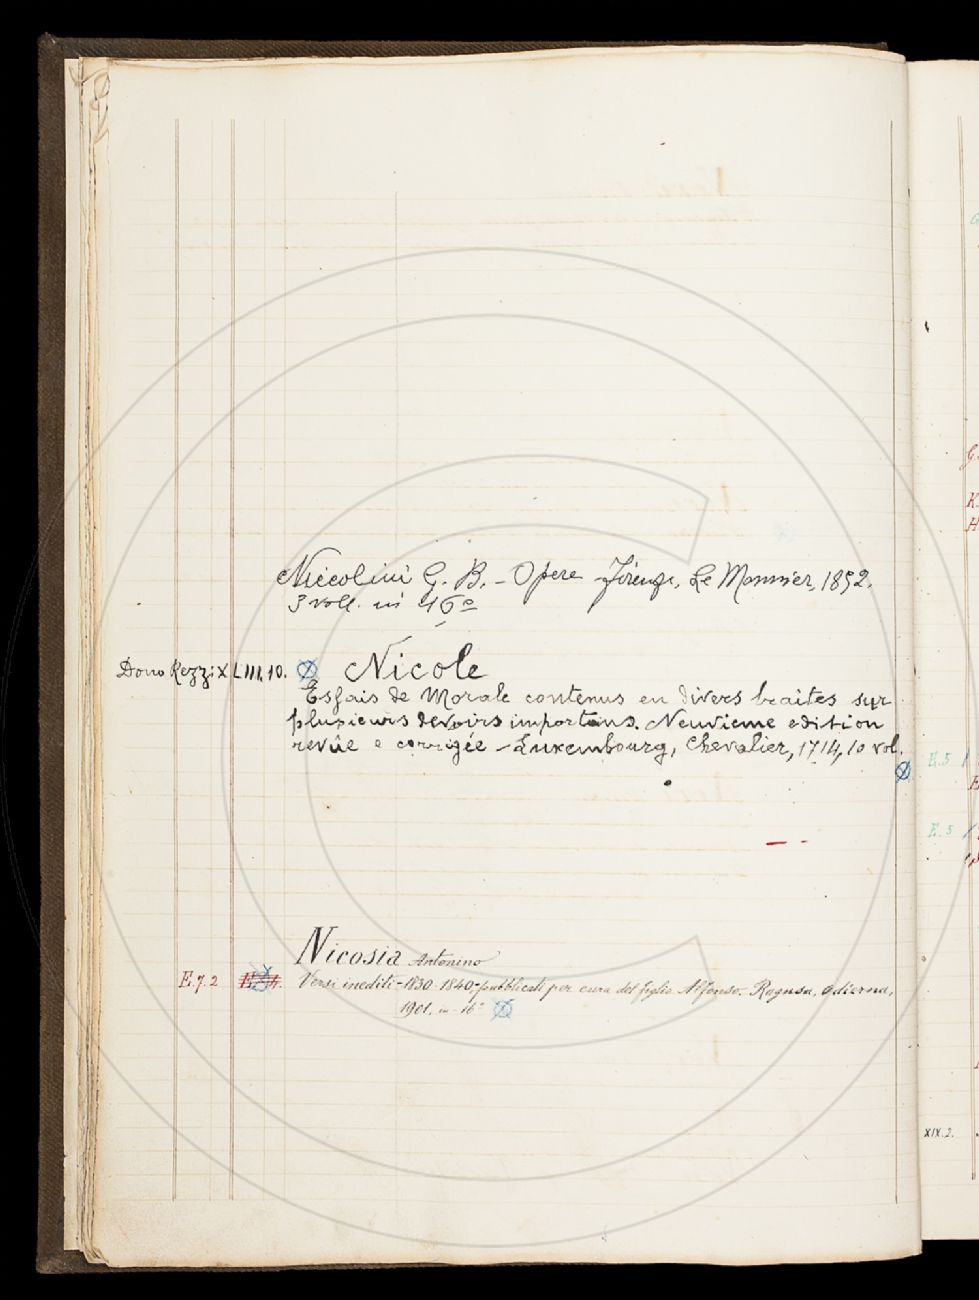 Niccolini G. B. - Opere - Firenze, Le Monnier, 1852.
3 voll. in 16°
Nicole
Dono Rezzi XLIII, 10.
Essais de Morale contenus en divers traites sur
plusieurs devoirs importans. Neuvieme edition
revûe e corrigée - Luxembourg, Chevalier, 1714, 10 vol.
Nicosia Antonino
E.7.2 Versi inediti - 1830-1840, pubblicati per cura del figlio Alfonso. Ragusa, Odierna,
1901, in-16°
E.5
E.5
XIX.2.